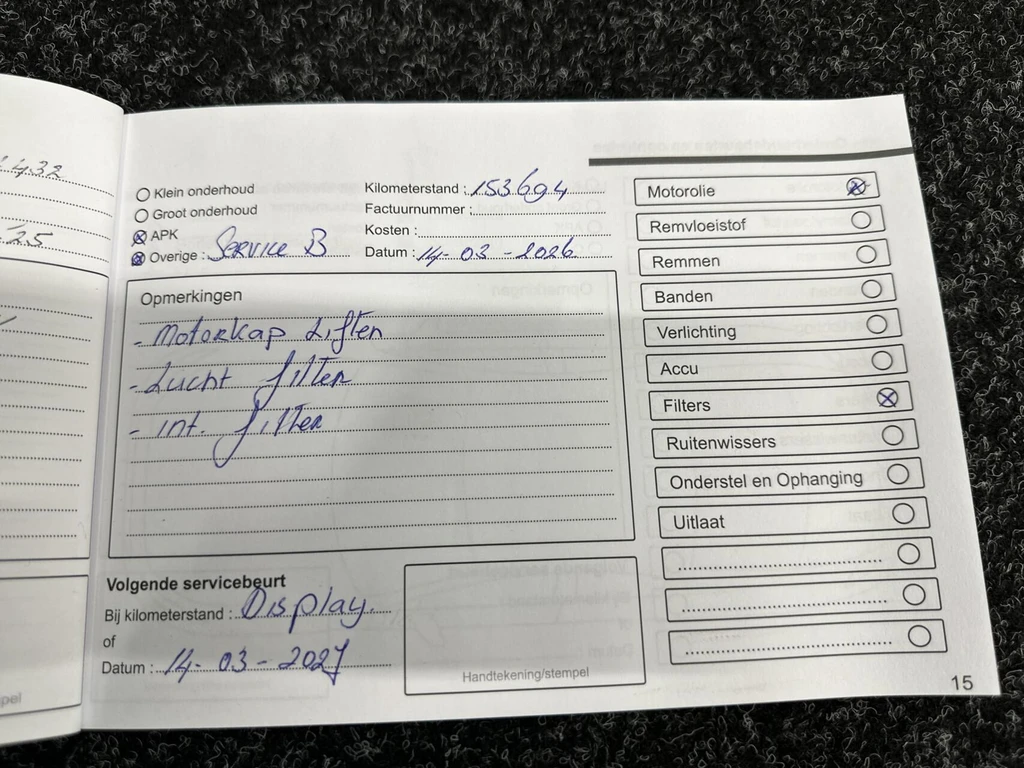 1.432
25
pel
Klein onderhoud
Groot onderhoud
APK
Overige : Service B
Kilometerstand : 153694
Factuurnummer :
Kosten :
Datum : 14-03-2026
Opmerkingen
- Motorkap Liften
- Lucht filter
- int. filter
Volgende servicebeurt
Bij kilometerstand : Display.
of
Datum : 14-03-2027
Handtekening/stempel
Motorolie
Remvloeistof
Remmen
Banden
Verlichting
Accu
Filters
Ruitenwissers
Onderstel en Ophanging
Uitlaat
15